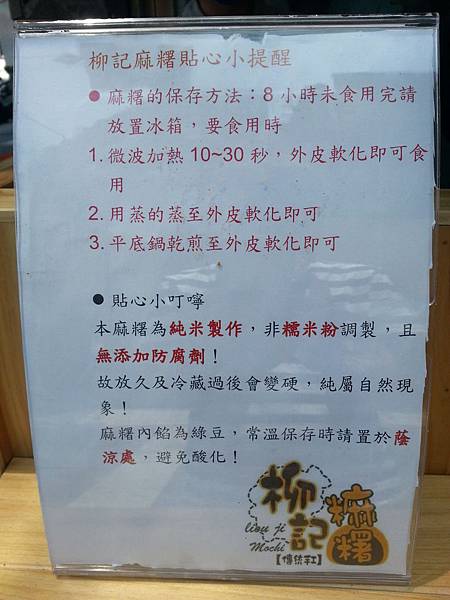 柳記麻糬貼心小提醒
● 麻糬的保存方法：8 小時未食用完請
放置冰箱，要食用時
1. 微波加熱 10~30 秒，外皮軟化即可食
用
2. 用蒸的蒸至外皮軟化即可
3. 平底鍋乾煎至外皮軟化即可
● 貼心小叮嚀
本麻糬為純米製作，非糯米粉調製，且
無添加防腐劑！
故放久及冷藏過後會變硬，純屬自然現
象！
麻糬內餡為綠豆，常溫保存時請置於蔭
涼處，避免酸化！
柳記
麻糬
liou ji
Mochi
【傳統手工】